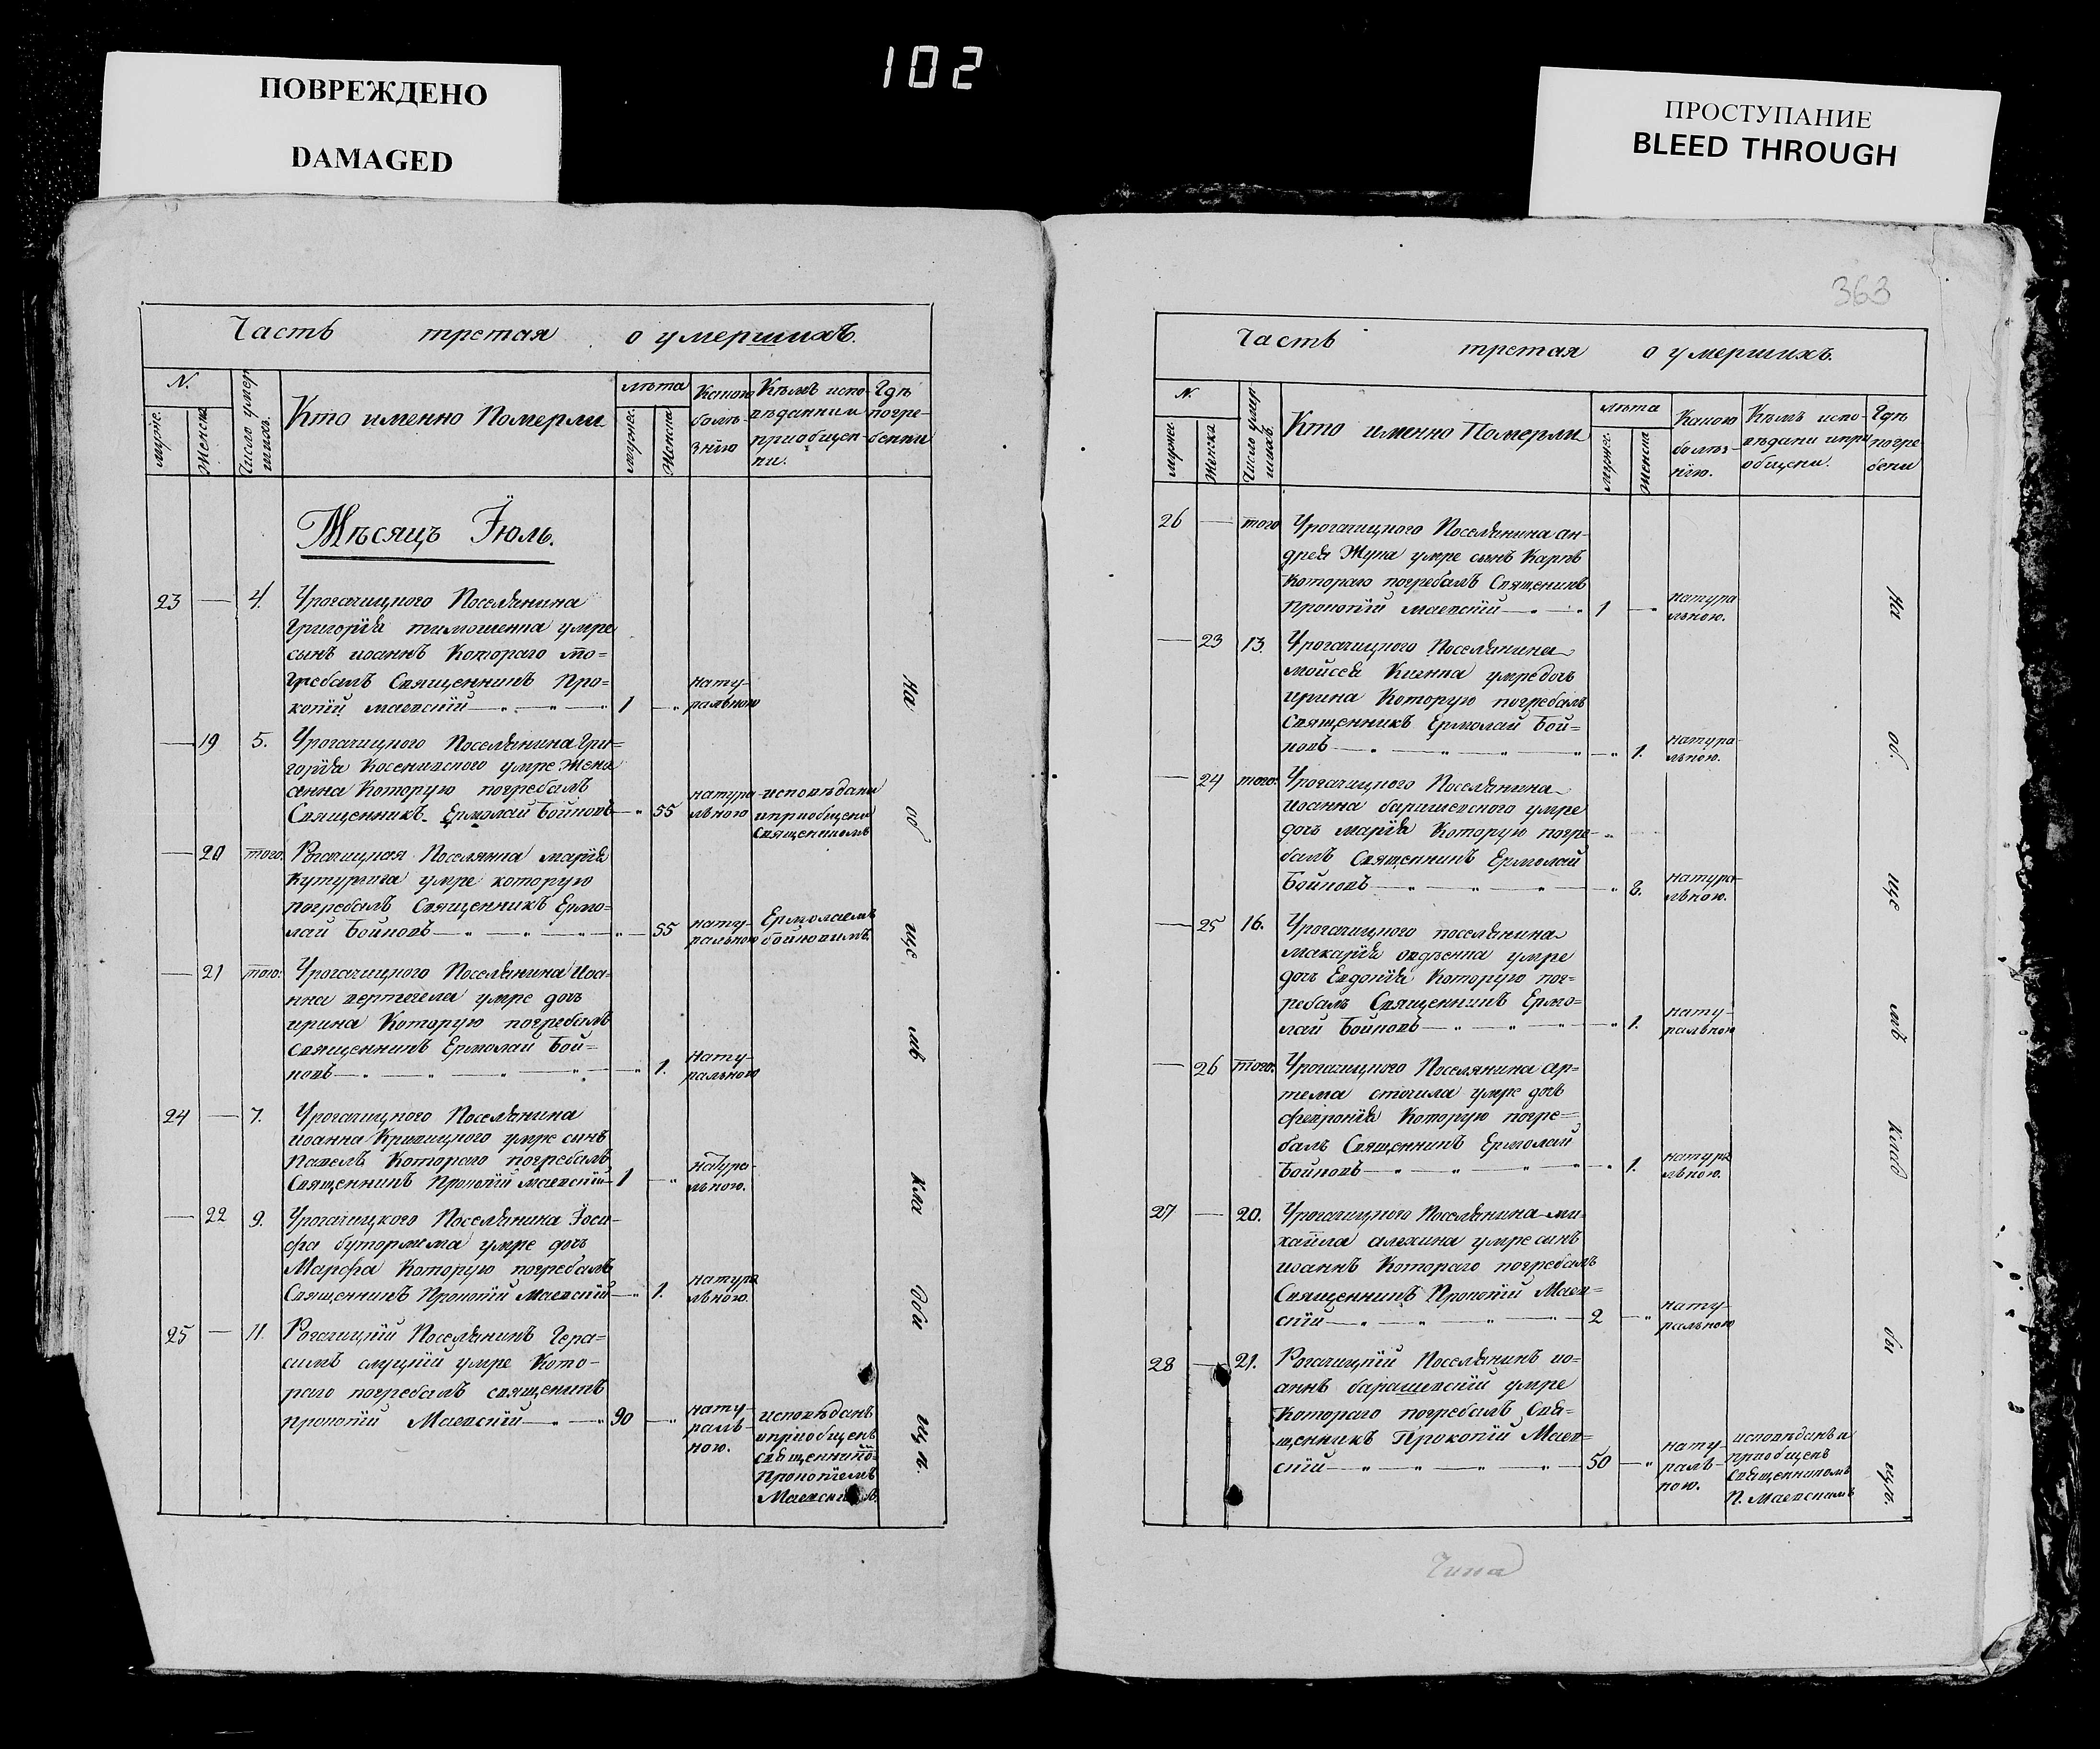 102
ПОВРЕЖДЕНО
DAMAGED
ПРОСТУПАНИЕ
BLEED THROUGH
Часть третая о умершихъ.
N.
муже.
Женска
Число умер
шихъ.
Кто именно Померли
лѣта
мужес.
Женска
Какою
болѣ-
знію
Кѣмъ испо-
вѣданни и
приобщен-
ни.
Гдѣ
погре-
бенни
Мѣсяцъ Іюль.
23 — 4. Урогачицкого Поселянина
Григорія тимошенка умре
сынъ иоаннъ Котораго по=
гребалъ Священникъ Про=
копій маевскій 1 нату-
ральною
— 19 5. Урогачицкого Поселянина Гри=
горія Косенивского умре Жена
анна Которую погребалъ
Священникъ Ермолай Бойновъ 55 натура
льною
исповѣдани
иприобщени
Священикомъ
— 20 того. Рогачицкая Поселянка марія
Кутуркига умре которую
погребалъ Священникъ Ермо=
лай Бойновъ 55 нату-
ральною
Ермолаемъ
бойновимъ.
— 21 того. Урогачицкого Поселянина Иоа=
нна вертегела умре дочь
ирина Которую погребалъ
Священникъ Ермолай Бой=
новъ 1. нату-
ральною
24 — 7. Урогачицкого Поселянина
иоанна Кривицкого умре синъ
Павелъ Котораго погребалъ
Священникъ Прокопій маевскій 1 натура-
льною.
— 22 9. Урогачицкого Поселянина Іоси-
фа бутормема умре дочь
Марфа Которую погребалъ
Священникъ Прокопій Маевскій 1. натура
льною.
25 — 11. Рогачицкій Поселянинъ Гера=
симъ слуцкій умре Кото-
раго погребалъ священикъ
прокопій Маевскій 90 нату-
раль-
ною.
исповѣданъ
иприобщенъ
священнико=
Прокопіемъ
Маевски
На об ще мъ кла дби щѣ.
363
Часть третая о умершихъ.
N.
мужес
Женска
Число умер
шихъ.
Кто именно Померли
лѣта
мужес.
Женска
Какою
болѣз-
нію.
Кѣмъ испо-
вѣдани ипри
общени.
Гдѣ
погре
бени
26 — того Урогачицкого Поселянина ан-
дрея Жука умре сынъ Карпъ
Котораго погребалъ Священикъ
Прокопій маевскій 1 натура
льною.
— 23 13. Урогачицкого Поселянина
мойсея Киенка умре дочь
ирина Которую погребалъ
Священникъ Ермолай Бой=
новъ 1. натура-
льною.
— 24 того. Урогачицкого Поселянина
иоанна барашевского умре
дочь марія Которую погре-
балъ Священникъ Ермолай
Бойновъ 2. натура-
льною.
— 25 16. Урогачицкого поселянина
макарія овдѣенка умре
дочь Евдокія Которую пог=
ребалъ Священникъ Ермо=
лай Бойновъ 1. нату-
ральною
— 26 того. Урогачицкого Поселянина ар=
тема стогила умре дочь
февронія Которую погре=
балъ Священникъ Ермолай
Бойновъ 1. натура
льною.
27 — 20. Урогачицкого Поселянина ми-
хаила алехина умре синъ
иоаннъ Котораго погребалъ
Священникъ Прокопій Маев=
скій 2 нату-
ральною
28 — 21. Рогачицкій Поселянинъ ио=
аннъ барашевскій умре
Котораго погребалъ Свя=
щенникъ Прокопій Маев=
скій 50 нату-
раль-
ною.
исповѣданъ и
приобщенъ
Священникомъ
П. Маевскимъ
На об ще мъ клад би щѣ.